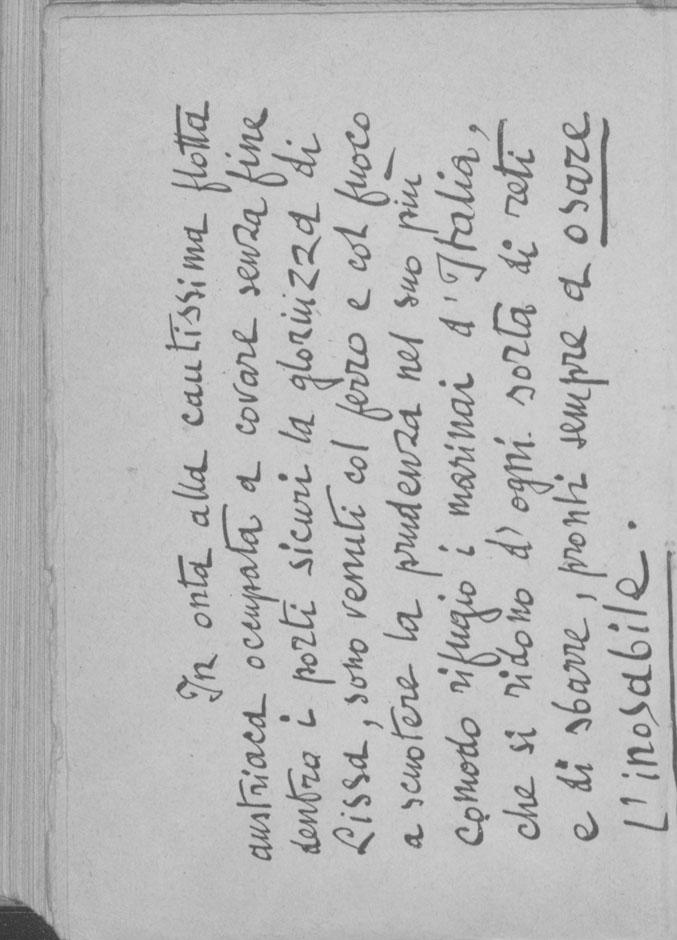 In onta alla cautissima flotta
austriaca occupata a covare senza fine
dentro i porti sicuri la gloriuzza di
Lissa, sono venuti col ferro e col fuoco
a scuotere la prudenza nel suo più
comodo rifugio i marinai d'Italia,
che si ridono d'ogni sorta di reti
e di sbarre, pronti sempre a osare
L'inosabile.